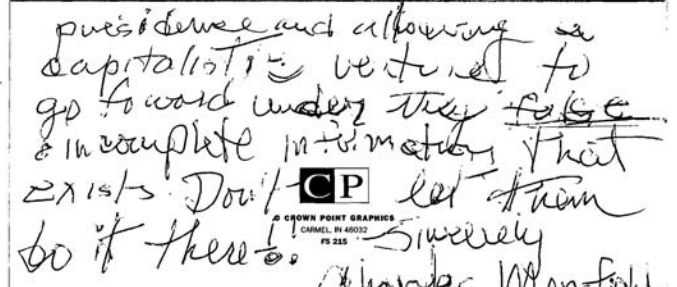 presidence and allowing a
capitalistic venture to
go foward under they false
& incomplete information that
exists. Don't let them
CP
CROWN POINT GRAPHICS
CARMEL, IN 46032
FS 215
do it there!! Sincerely